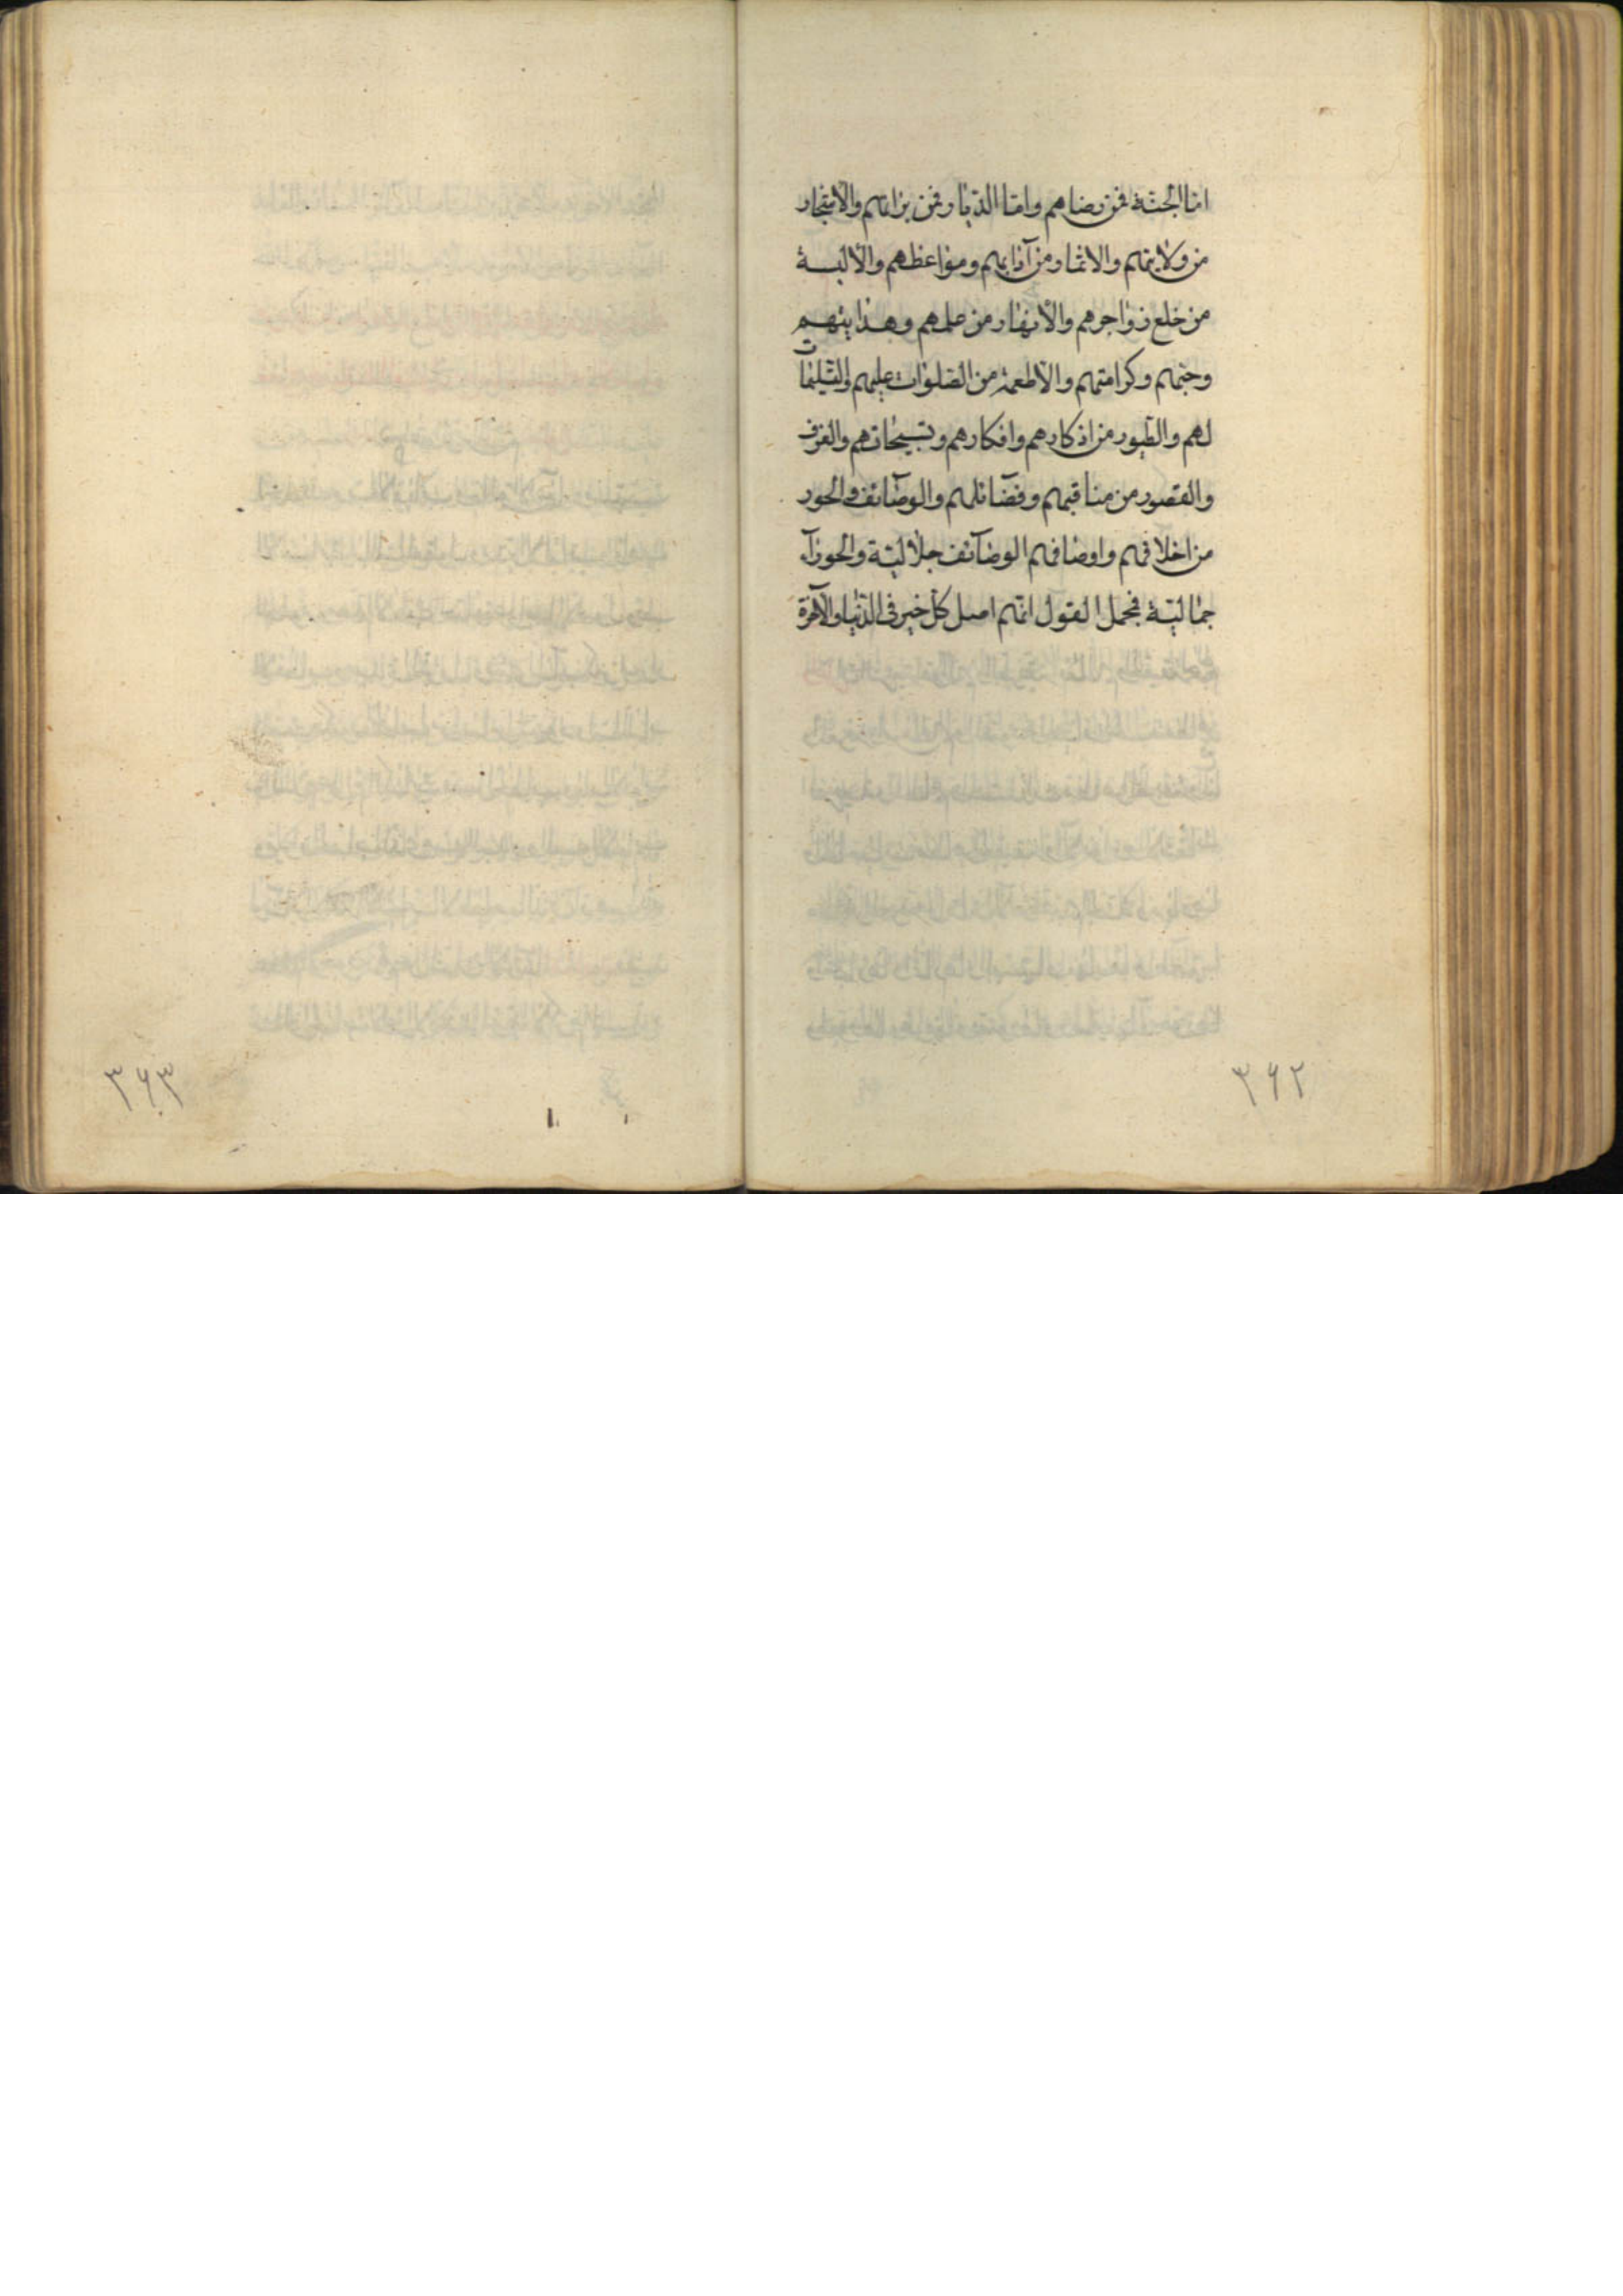 اما الجنّة فمن رضاهم واما الدّيار فمن برائتهم والاشجار
من ولايتهم والاثمار من آدابهم ومواعظهم والالبسة
من خلع زواجرهم والانهار من علمهم وهدايتهم
وحبّهم وكرامتهم والاطعمة من الصّلوات عليهم والتّسليمات
لهم والطّيور من اذكارهم وافكارهم وتسبيحاتهم والغرف
والقصور من مناقبهم وفضآئلهم والوصآئف والحور
من اخلاقهم واوصافهم الوصآئف جلاليّة والحورآء
جماليّة فمجمل القول انّهم اصل كلّ خير فى الدّنيا والآخرة
۳۶۲
۳۶۳